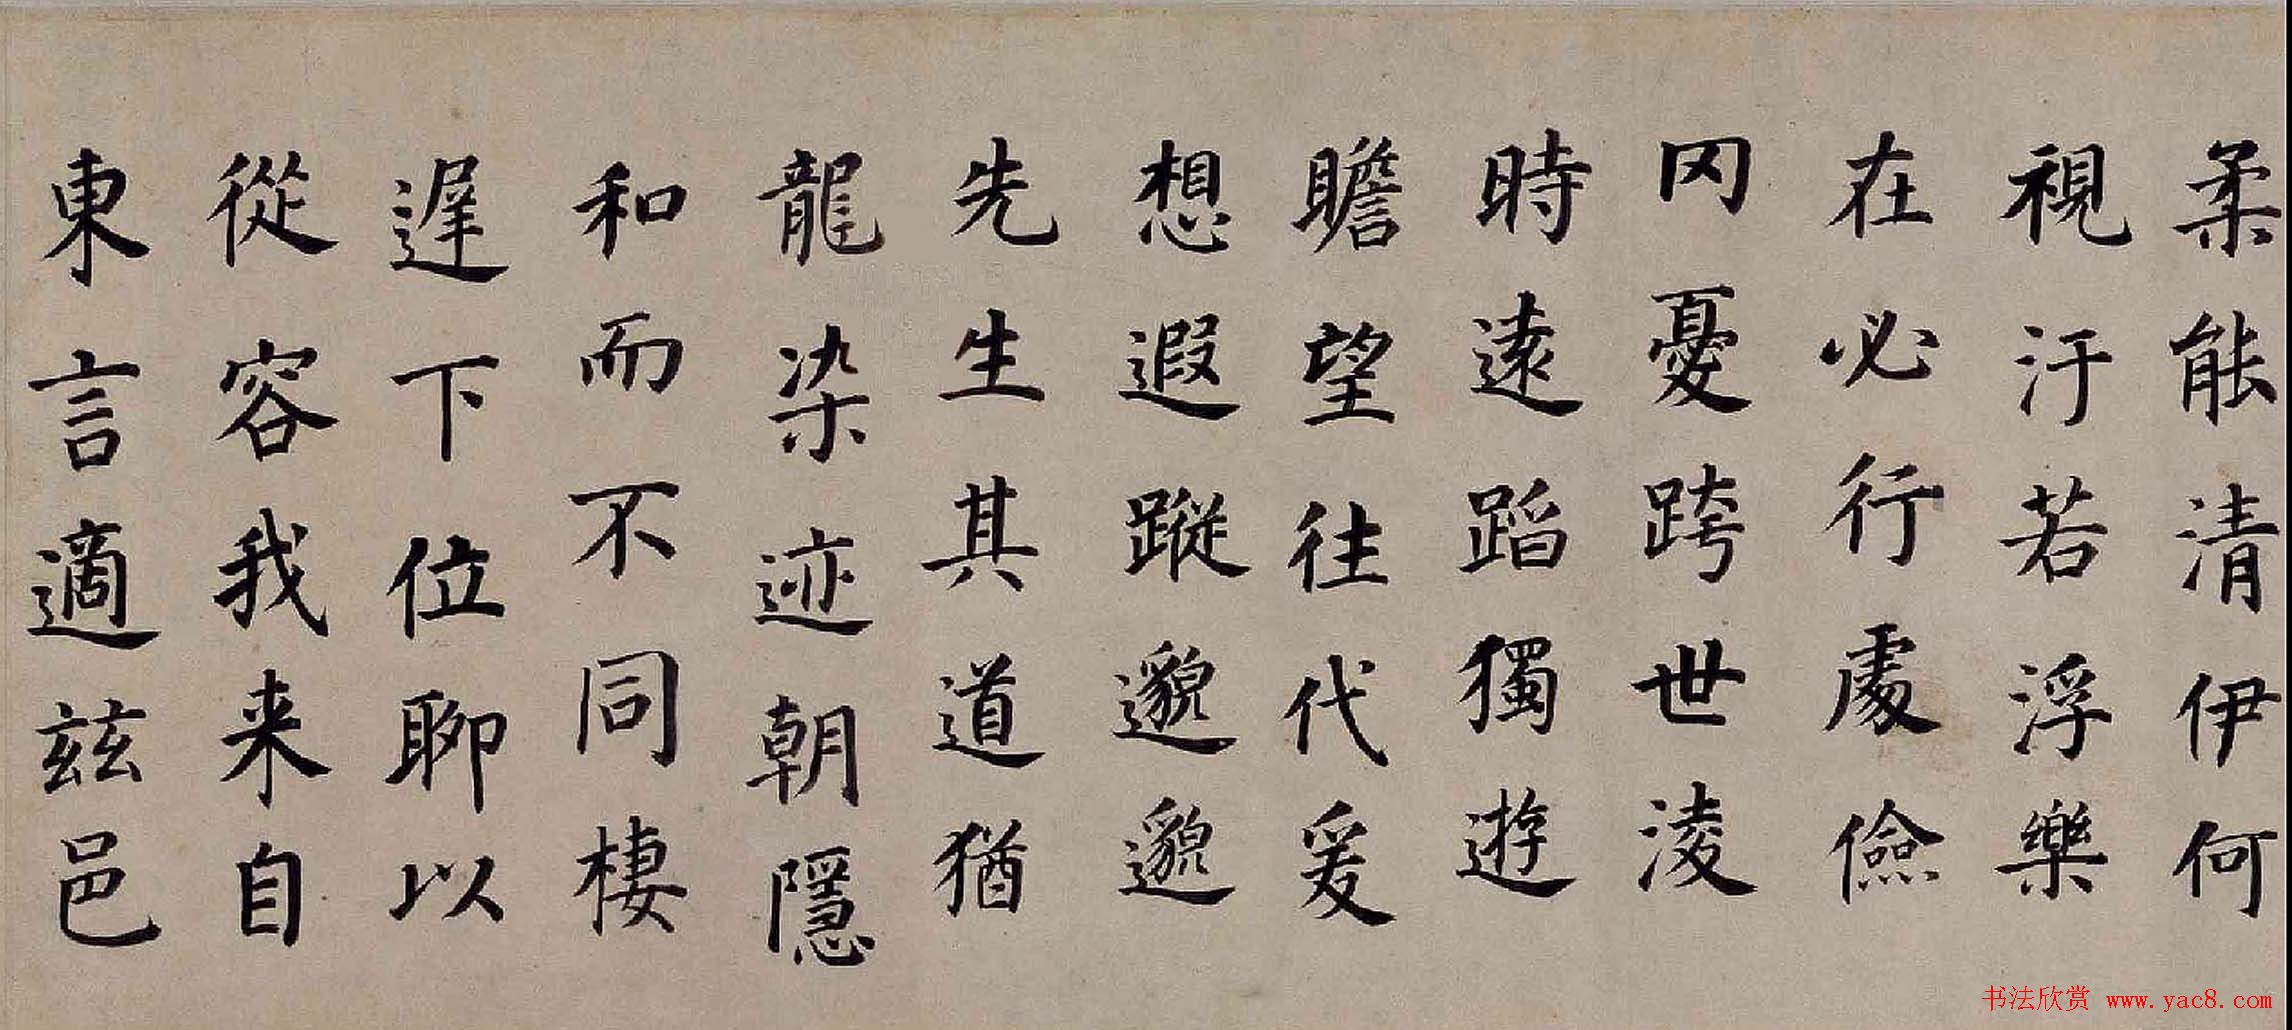 柔能清伊何
視汙若浮樂
在必行處儉
罔憂跨世淩
時遠蹈獨遊
瞻望往代爰
想遐蹤邈邈
先生其道猶
龍染迹朝隱
和而不同棲
遲下位聊以
從容我来自
東言適茲邑
书法欣赏 www.yac8.com